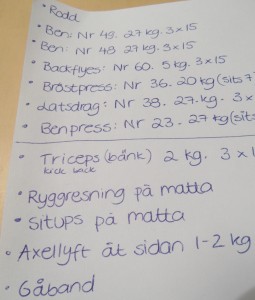 • Rodd
• Ben: Nr 49. 27 kg. 3×15
• Ben: Nr 48 27 kg. 3×15
• Backflyes: Nr 60. 5 kg. 3×15
• Bröstpress: Nr 36. 20 kg (sits 7
• Latsdrag: Nr 38. 27 kg. 3×
• Benpress: Nr 23. 27 kg (sits
• Triceps (bänk) 2 kg. 3×1
kick back
• Ryggresning på matta
• Situps på matta
• Axellyft åt sidan 1-2 kg
• Gåband